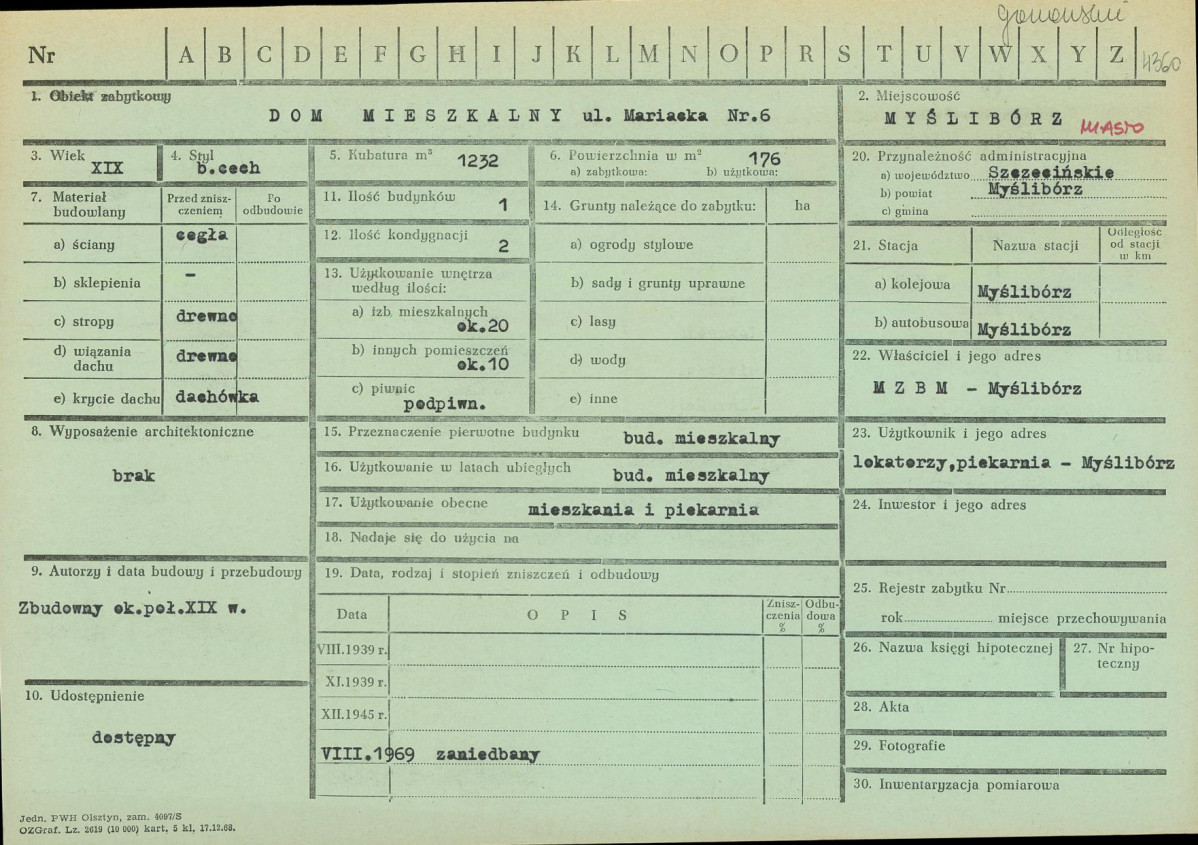 gonowski
Nr A B C D E F G H I J K L M N O P R S T U V W X Y Z 4360
1. Obiekt zabytkowy
DOM MIESZKALNY ul. Mariacka Nr.6
2. Miejscowość
MYŚLIBÓRZ MIASTO
3. Wiek
XIX
4. Styl
b.cech
5. Kubatura m³ 1232
6. Powierzchnia w m² 176
a) zabytkowa: b) użytkowa:
20. Przynależność administracyjna
a) województwo Szczecińskie
b) powiat Myślibórz
c) gmina
7. Materiał budowlany
Przed zniszczeniem
Po odbudowie
a) ściany cegła
b) sklepienia –
c) stropy drewno
d) wiązania dachu drewno
e) krycie dachu dachówka
11. Ilość budynków 1
12. Ilość kondygnacji 2
13. Użytkowanie wnętrza
według ilości:
a) izb mieszkalnych
ok.20
b) innych pomieszczeń
ok.10
c) piwnic
podpiwn.
14. Grunty należące do zabytku: ha
a) ogrody stylowe
b) sady i grunty uprawne
c) lasy
d) wody
e) inne
21. Stacja Nazwa stacji Odległość od stacji w km
a) kolejowa Myślibórz
b) autobusowa Myślibórz
22. Właściciel i jego adres
M Z B M – Myślibórz
8. Wyposażenie architektoniczne
brak
15. Przeznaczenie pierwotne budynku bud. mieszkalny
16. Użytkowanie w latach ubiegłych bud. mieszkalny
17. Użytkowanie obecne mieszkania i piekarnia
18. Nadaje się do użycia na
23. Użytkownik i jego adres
lokatorzy,piekarnia – Myślibórz
24. Inwestor i jego adres
9. Autorzy i data budowy i przebudowy
Zbudowny ok.poł.XIX w.
19. Data, rodzaj i stopień zniszczeń i odbudowy
Data OPIS Zniszczenia % Odbudowa %
VIII.1939 r.
XI.1939 r.
XII.1945 r.
VIII.1969 zaniedbany
25. Rejestr zabytku Nr
rok miejsce przechowywania
26. Nazwa księgi hipotecznej
27. Nr hipoteczny
10. Udostępnienie
dostępny
28. Akta
29. Fotografie
30. Inwentaryzacja pomiarowa
Jedn. PWH Olsztyn, zam. 4097/S
OZGraf. Lz. 2619 (10 000) kart, 5 kl, 17.12.68.